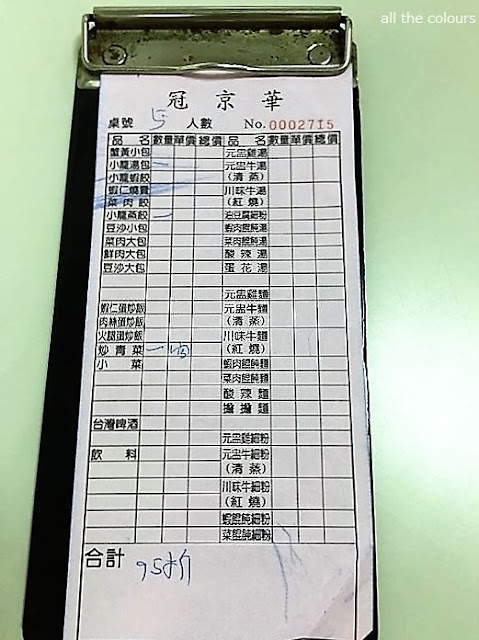 all the colours
冠京華
桌號 5 人數 No. 0002715
品名 數量 單價 總價 品名 數量 單價 總價
蟹黃小包 元盅雞湯
小龍湯包 一 元盅牛湯
小龍蝦餃 (清蒸)
蝦仁燒賣 川味牛湯
菜肉餃 (紅燒)
小龍蒸餃 一 油豆腐細粉
豆沙小包 蝦肉餛飩湯
菜肉大包 菜肉餛飩湯
鮮肉大包 酸辣湯
豆沙大包 蛋花湯
元盅雞麵
蝦仁蛋炒飯 元盅牛麵
肉絲蛋炒飯 (清蒸)
火腿蛋炒飯 川味牛麵
炒青菜 一 (紅燒)
小菜 蝦肉餛飩麵
菜肉餛飩麵
酸辣麵
擔擔麵
台灣啤酒
元盅雞細粉
飲料 元盅牛細粉
(清蒸)
川味牛細粉
(紅燒)
蝦餛飩細粉
菜餛飩細粉
合計 95折